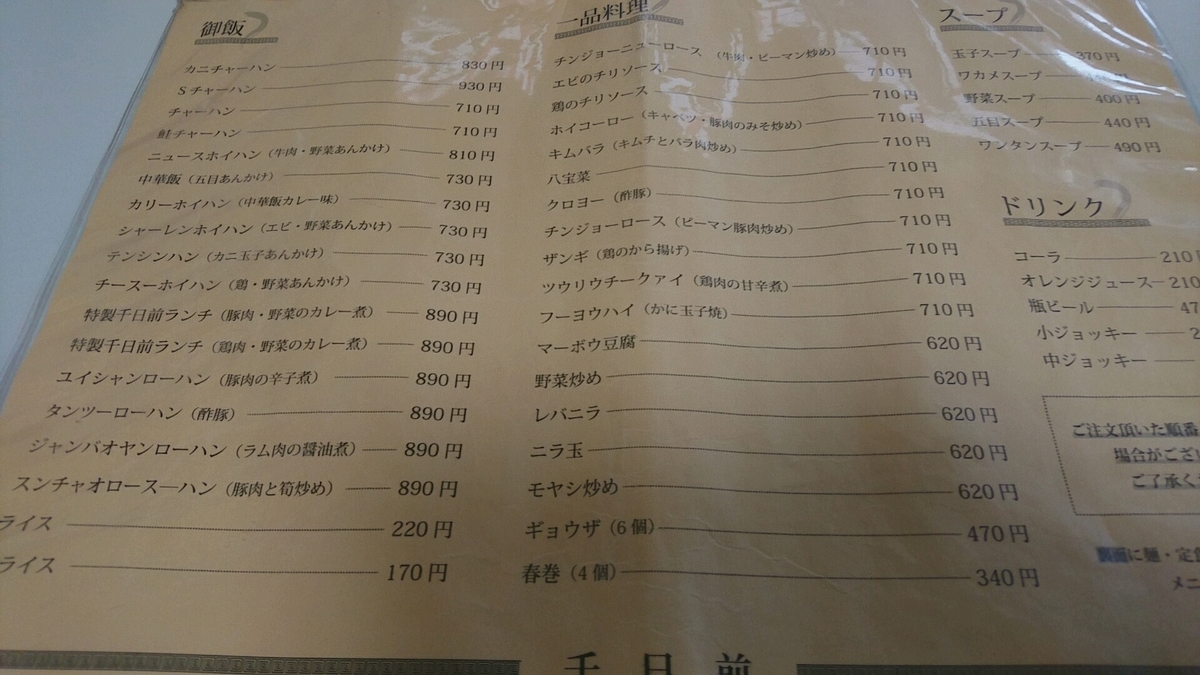 御飯
カニチャーハン 830円
Sチャーハン 930円
チャーハン 710円
鮭チャーハン 710円
ニュースホイハン（牛肉・野菜あんかけ） 810円
中華飯（五目あんかけ） 730円
カリーホイハン（中華飯カレー味） 730円
シャーレンホイハン（エビ・野菜あんかけ） 730円
テンシンハン（カニ玉子あんかけ） 730円
チースーホイハン（鶏・野菜あんかけ） 730円
特製千日前ランチ（豚肉・野菜のカレー煮） 890円
特製千日前ランチ（鶏肉・野菜のカレー煮） 890円
ユイシャンローハン（豚肉の辛子煮） 890円
タンツーローハン（酢豚） 890円
ジャンバオヤンローハン（ラム肉の醤油煮） 890円
スンチャオロースーハン（豚肉と筍炒め） 890円
ライス 220円
ライス 170円
一品料理
チンジョーニューロース （牛肉・ピーマン炒め） 710円
エビのチリソース 710円
鶏のチリソース 710円
ホイコーロー（キャベツ・豚肉のみそ炒め） 710円
キムバラ（キムチとバラ肉炒め） 710円
八宝菜 710円
クロヨー（酢豚） 710円
チンジョーロース（ピーマン豚肉炒め） 710円
ザンギ（鶏のから揚げ） 710円
ツウリウチークァイ（鶏肉の甘辛煮） 710円
フーヨウハイ（かに玉子焼） 710円
マーボウ豆腐 620円
野菜炒め 620円
レバニラ 620円
ニラ玉 620円
モヤシ炒め 620円
ギョウザ（6個） 470円
春巻（4個） 340円
スープ
玉子スープ 370円
ワカメスープ 円
野菜スープ 400円
五目スープ 440円
ワンタンスープ 490円
ドリンク
コーラ 210
オレンジジュース 210
瓶ビール 47
小ジョッキー 2
中ジョッキー
ご注文頂いた順番
場合がござい
ご了承く
裏面に麺・定食
メニ
千日前